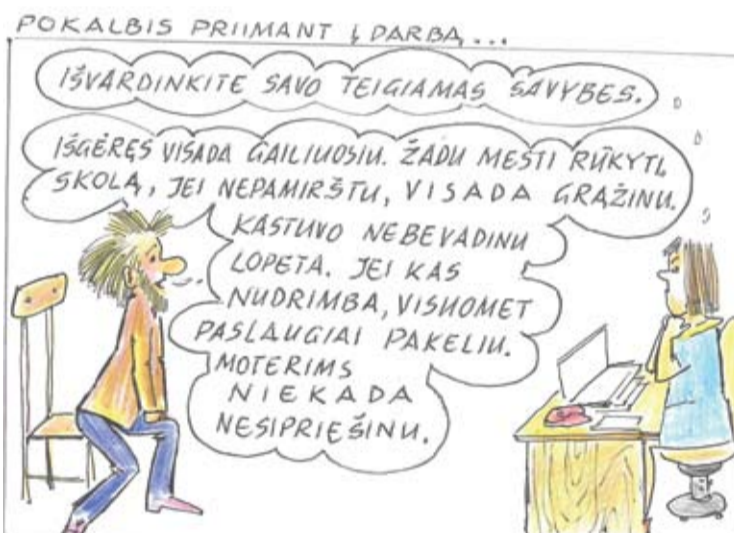 POKALBIS PRIIMANT Į DARBĄ...
IŠVARDINKITE SAVO TEIGIAMAS SAVYBES.
IŠGĖRĘS VISADA GAILIUOSIU. ŽADU MESTI RŪKYTI,
SKOLĄ, JEI NEPAMIRŠTU, VISADA GRĄŽINU.
KASTUVO NEBEVADINU
LOPETA. JEI KAS
NUDRIMBA, VISUOMET
PASLAUGIAI PAKELIU.
MOTERIMS
NIEKADA
NESIPRIEŠINU.